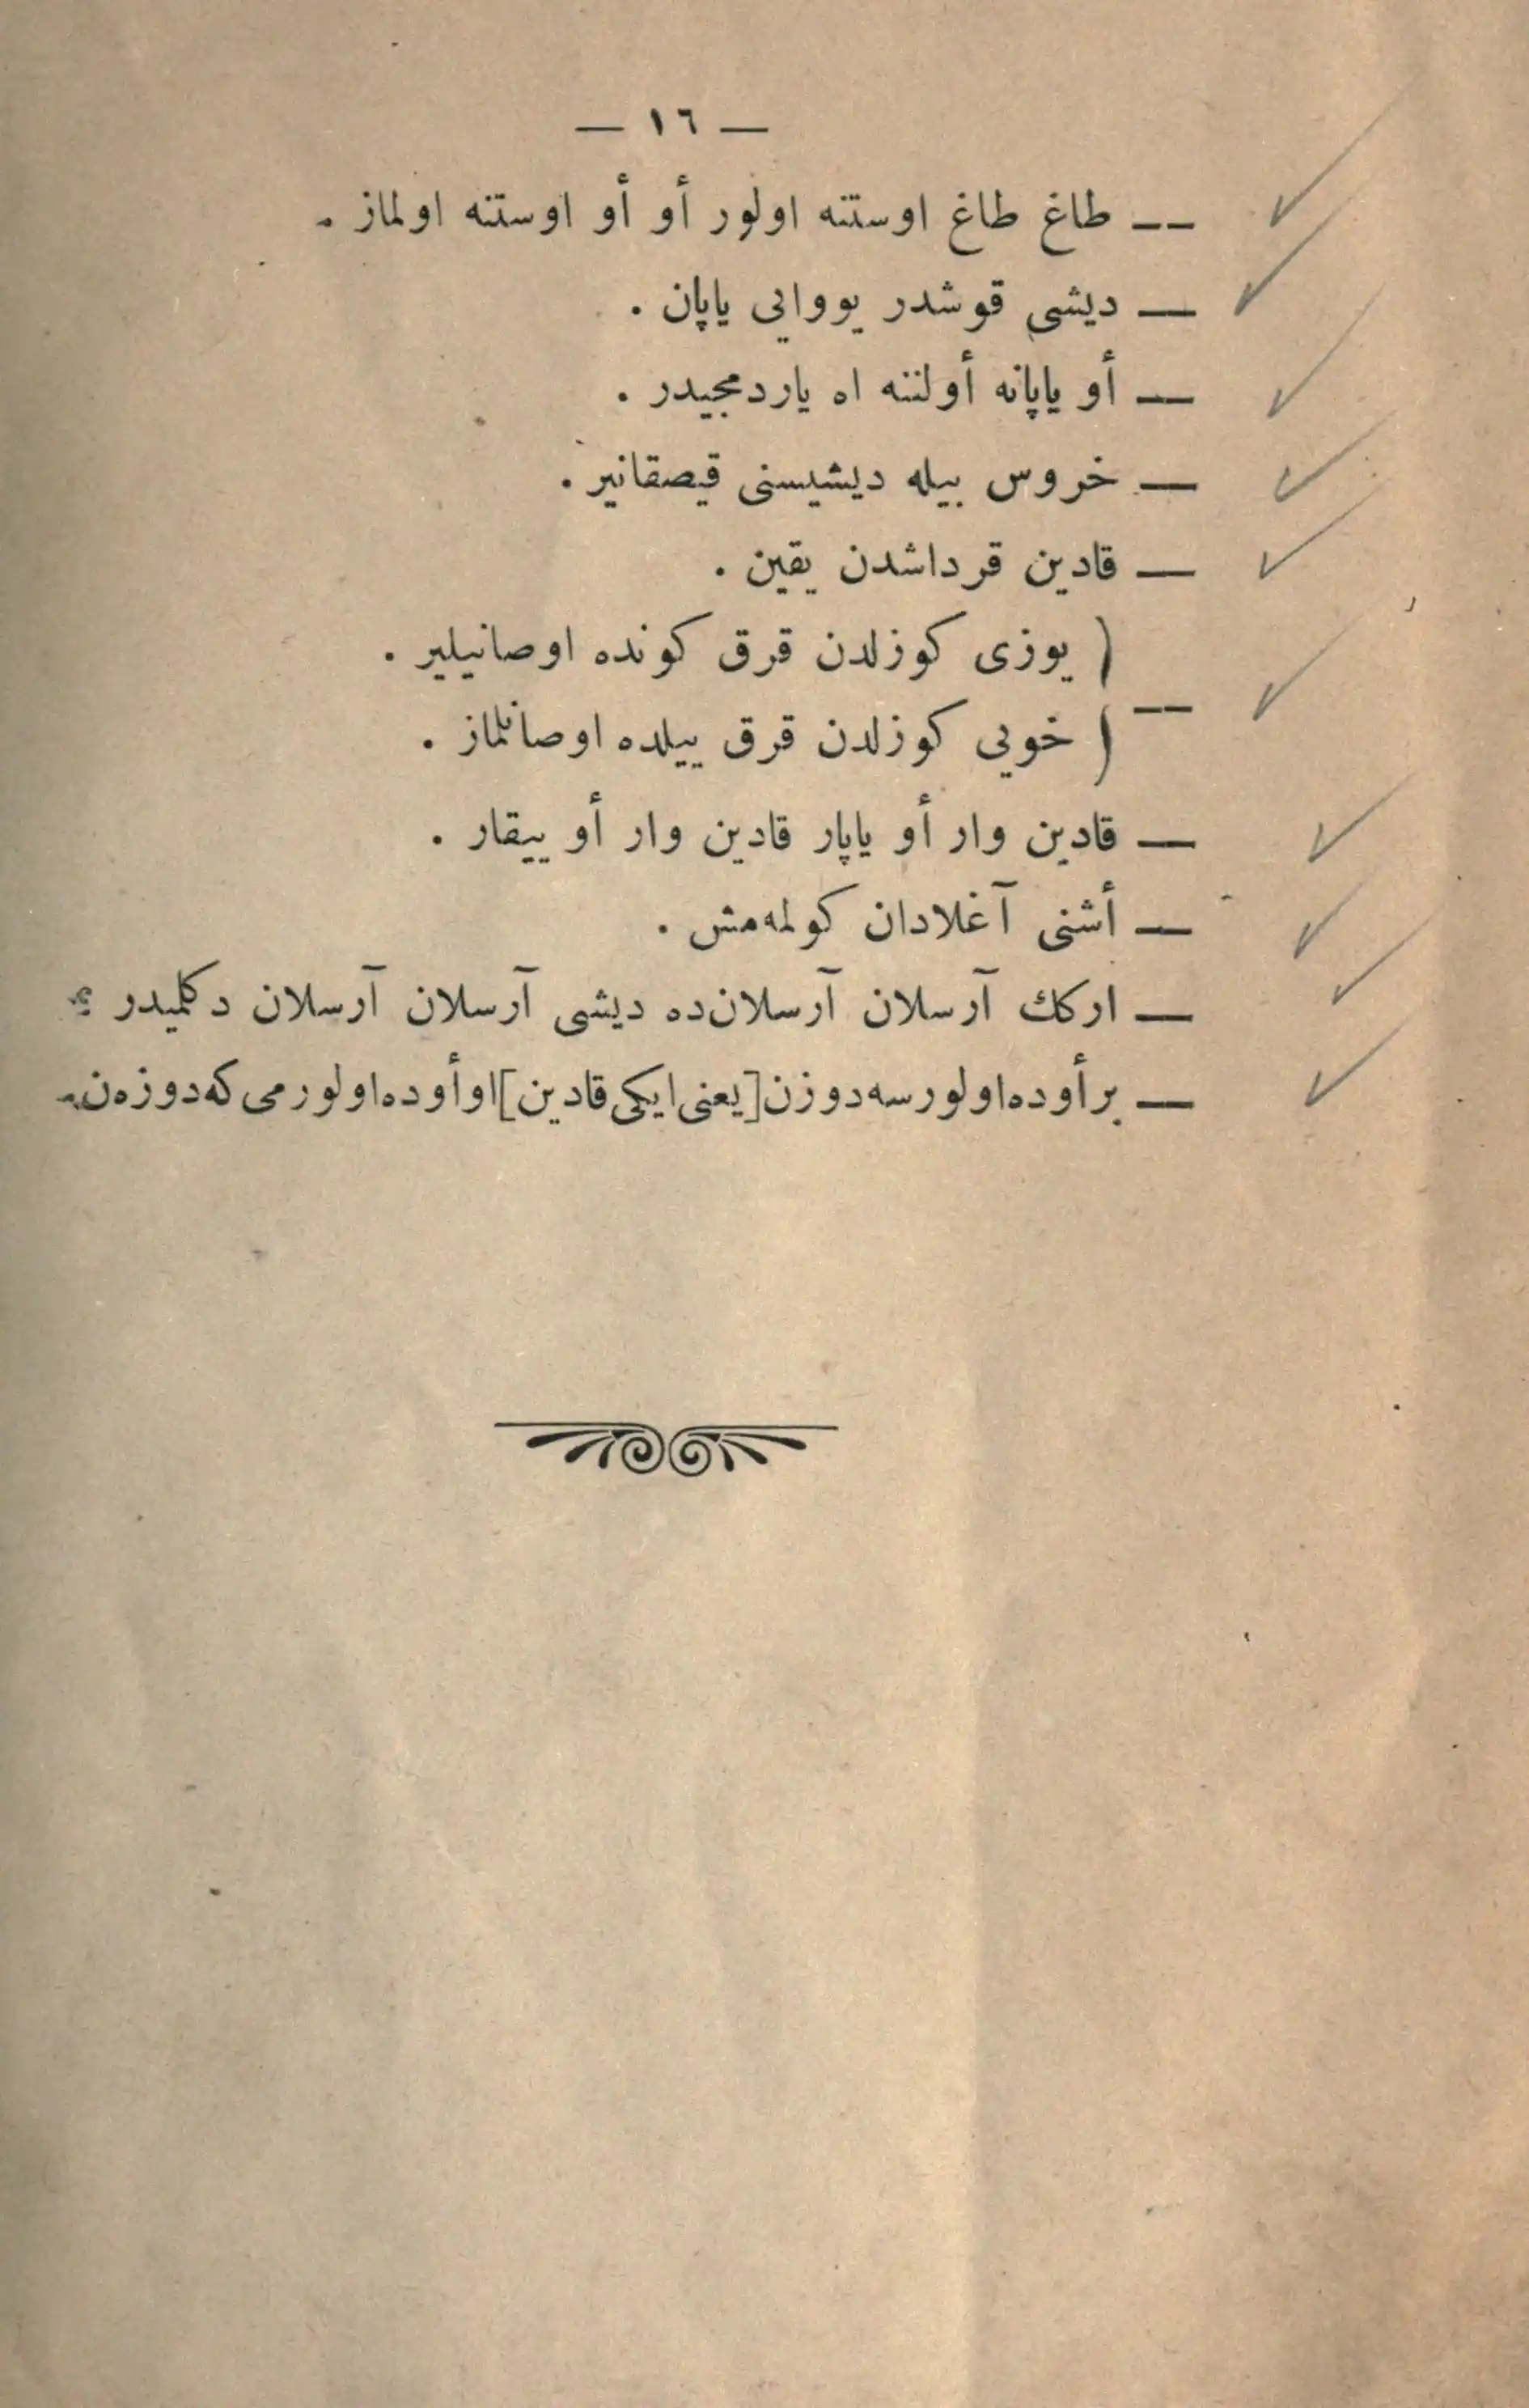 — ١٦ —
— طاغ طاغ اوستنه اولور أو أو اوستنه اولماز .
— ديشى قوشدر يووايى ياپان .
— أو ياپانه أولننه اﻪ ياردمجيدر .
— خروس بيله ديشيسنى قيصقانير .
— قادين قرداشدن يقين .
( يوزى كوزلدن قرق كونده اوصانيلير .
— ( خويى كوزلدن قرق ييلده اوصانلماز .
— قادين وار أو ياپار قادين وار أو ييقار .
— أشنى آغلادان كولمه‌مش .
— اركك آرسلان آرسلان‌ده ديشى آرسلان آرسلان دكلميدر ؟
— بر أوده اولورسه دوزن [يعنى ايكى قادين] او أوده اولورمى كه دوزه‌ن .